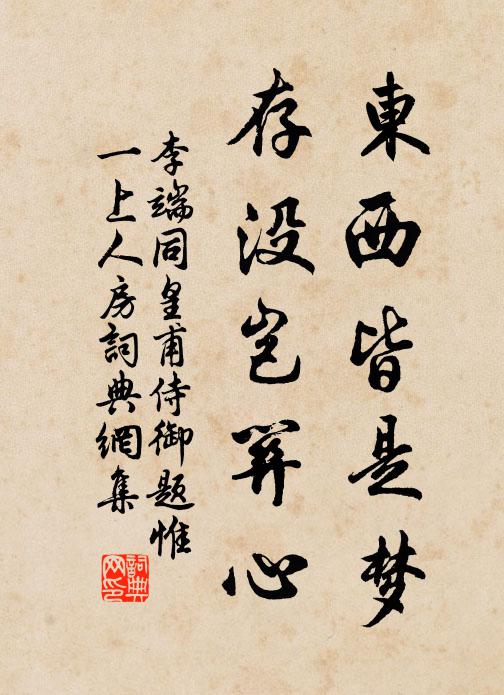 東西皆是梦
存没岂關心
李端同皇甫侍御題惟
一上人房詞典網集
詞典
网印